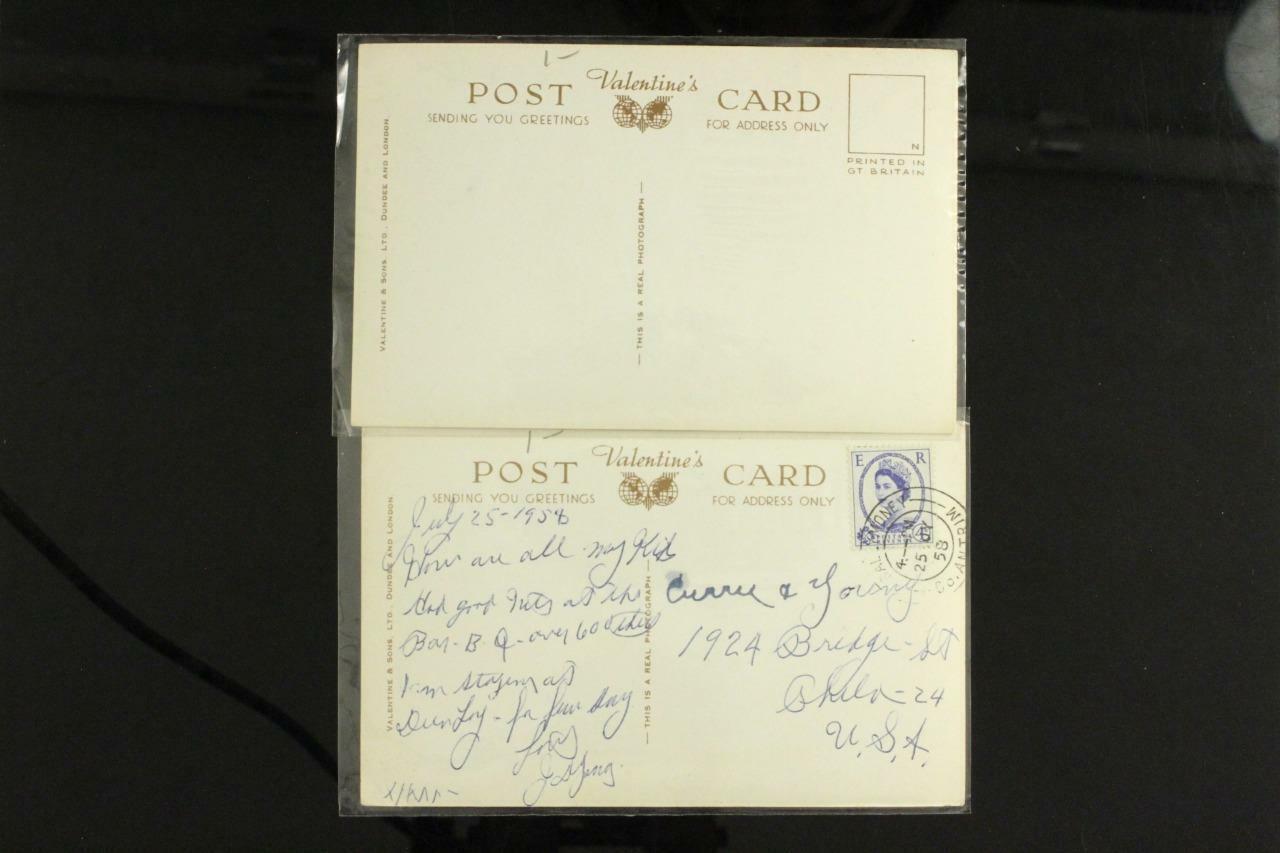 1-
Valentine's
POST CARD
SENDING YOU GREETINGS
FOR ADDRESS ONLY
N
PRINTED IN
GT. BRITAIN
VALENTINE & SONS, LTD., DUNDEE AND LONDON.
— THIS IS A REAL PHOTOGRAPH —
1-
Valentine's
POST CARD
SENDING YOU GREETINGS
FOR ADDRESS ONLY
E R
4D
MONEY
CO. ANTRIM
25
58
VALENTINE & SONS, LTD., DUNDEE AND LONDON.
— THIS IS A REAL PHOTOGRAPH —
July 25-1958
How are all my Kids
Had good at the
Bar-B-Q-over 600 there
I'm staying at
Dunloy-for few day
Love
Currie & Young
1924 Bridge-St
Phila-24
U.S.A.